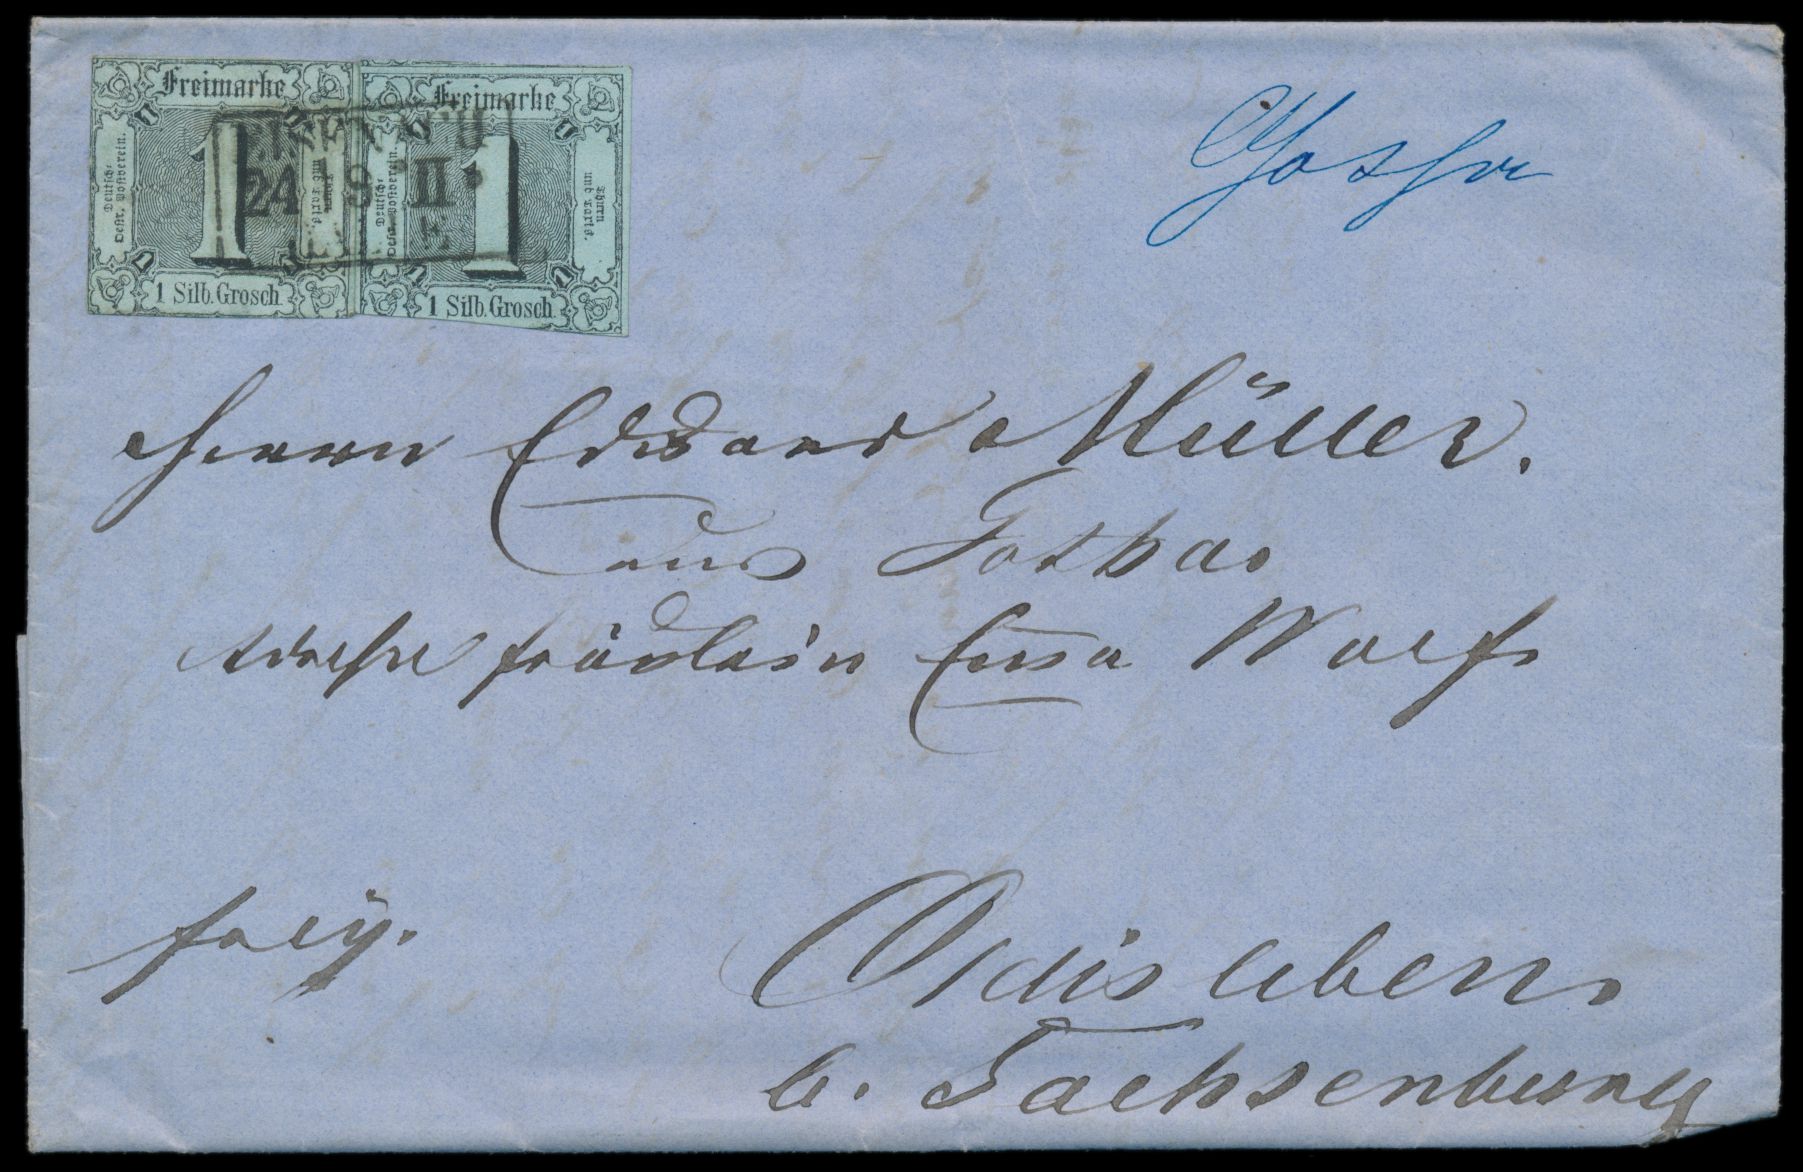 Freimarke
Deutsch-
Oestr. Postverein.
1
Thurn
und Taxis.
1 Silb. Grosch.
Freimarke
Deutsch-
Oestr. Postverein.
1
Thurn
und Taxis.
1 Silb. Grosch.
24 8 II
Gotha
Herrn Eduard Müller.
aus Gotha.
Adresse Fräulein Wolf.
frey.
Oldisleben.
b. Sachsenburg